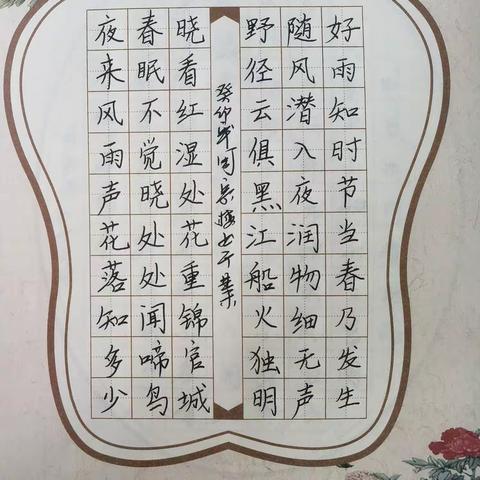 好雨知时节当春乃发生
随风潜入夜润物细无声
野径云俱黑江船火独明
晓看红湿处花重锦官城
春眠不觉晓处处闻啼鸟
夜来风雨声花落知多少